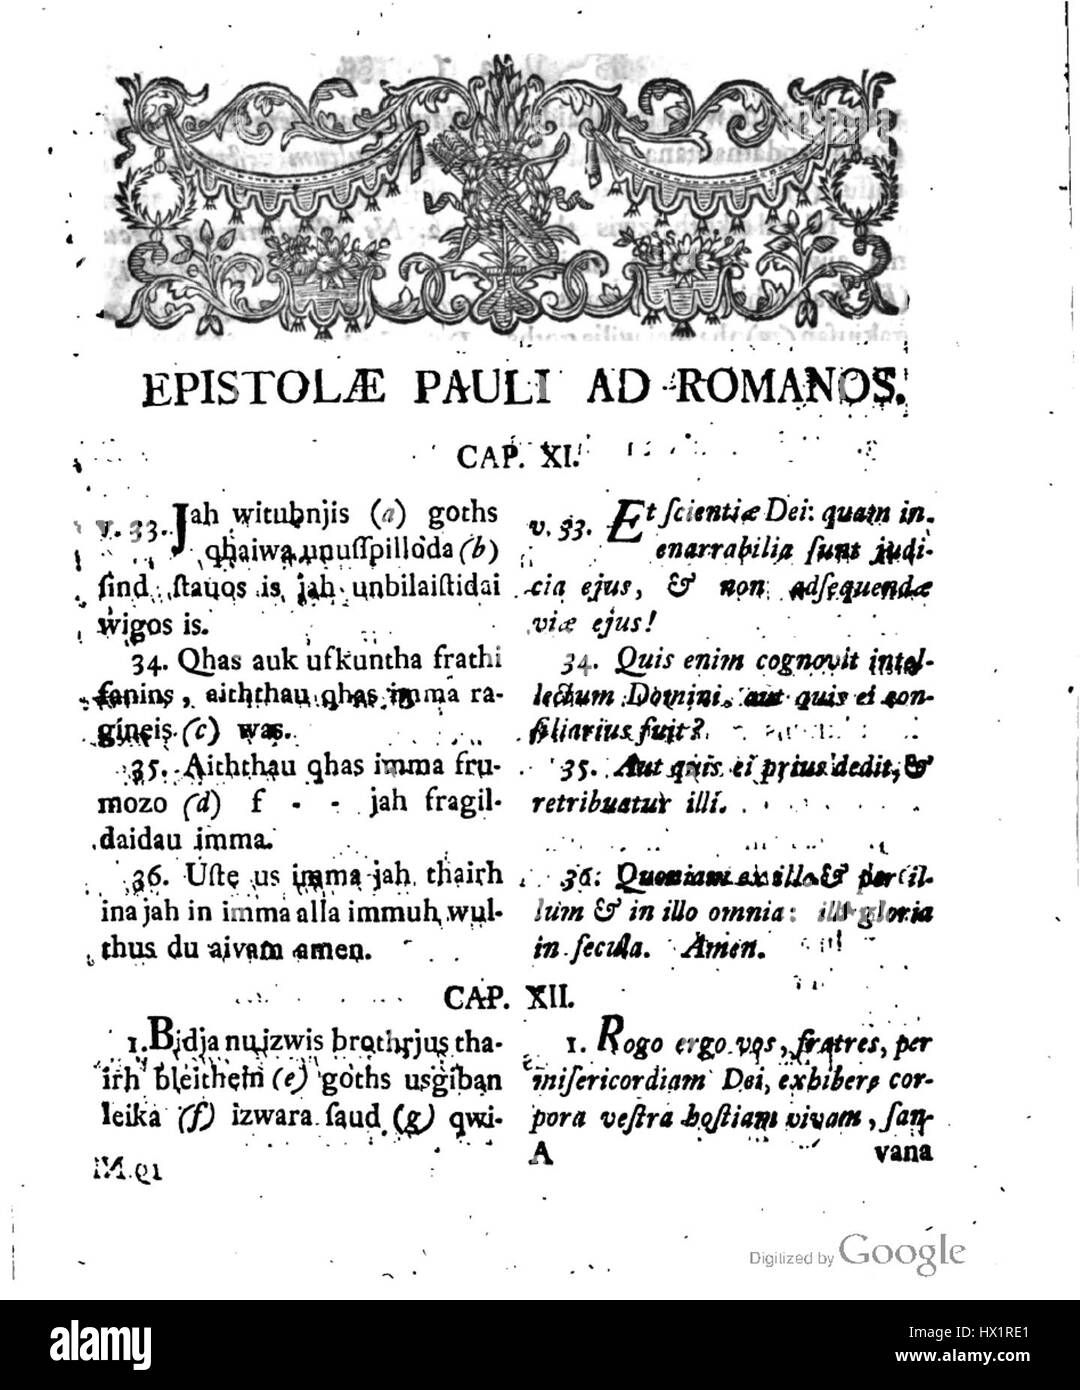 EPISTOLÆ PAULI AD ROMANOS.
CAP. XI.
v. 33. Jah witubnjis (a) goths
qhaiwa unusſpilloda (b)
ſind ſtauos is jah unbilaiſtidai
wigos is.
34. Qhas auk ufkuntha frathi
fanins, aiththau qhas imma ra-
gineis (c) was.
35. Aiththau qhas imma fru-
mozo (d) f - - jah fragil-
daidau imma.
36. Uſte us imma jah thairh
ina jah in imma alla immuh wul-
thus du aivam amen.
v. 33. Et ſcientiæ Dei: quam in-
enarrabilia ſunt judi-
cia ejus, & non adſequendæ
viæ ejus!
34. Quis enim cognovit intel-
lectum Domini, aut quis ei con-
ſiliarius fuit?
35. Aut quis ei prius dedit, &
retribuatur illi.
36. Quoniam ex illo & per il-
lum & in illo omnia: illi gloria
in ſecula. Amen.
CAP. XII.
1. Bidja nu izwis brothrjus tha-
irh bleithein (e) goths usgiban
leika (f) izwara ſaud (g) qwi-
1. Rogo ergo vos, fratres, per
miſericordiam Dei, exhibere cor-
pora veſtra hoſtiam vivam, ſan-
A vana
Digitized by Google
alamy
Image ID: HX1RE1
www.alamy.com